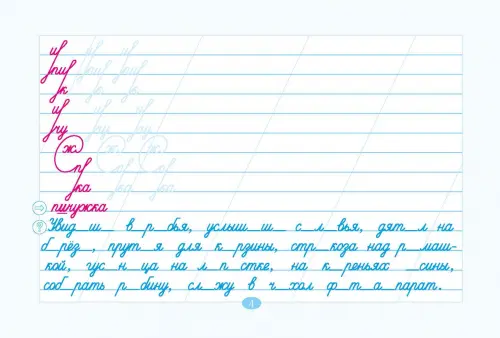 и
пи
к
и
чу
ж
п
ка
пичужка
Увид_ш_ в р_бья, услыш_ш_ с_л_вья, дят_л на
б_рёз_, прут_я для к_рзины, стр_коза над р_маш-
кой, гус_н_ца на л_п_стке, на к_реньях _сины,
соб_рать р_бину, сл_жу в ч_хол ф_т_а_парат.
4